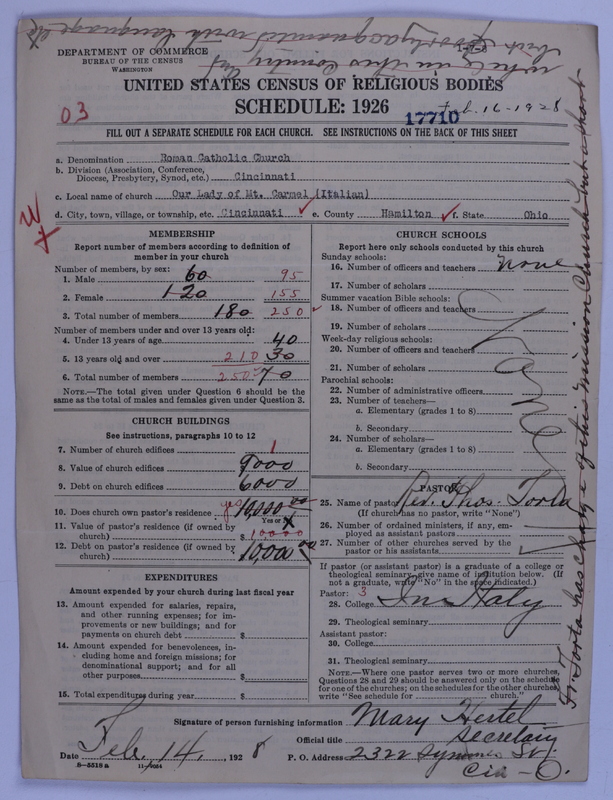 while in this country but
poorly acquainted with language etc
1-2-3
DEPARTMENT OF COMMERCE
BUREAU OF THE CENSUS
WASHINGTON
UNITED STATES CENSUS OF RELIGIOUS BODIES
SCHEDULE: 1926
03
17710
Feb. 16-1928
FILL OUT A SEPARATE SCHEDULE FOR EACH CHURCH. SEE INSTRUCTIONS ON THE BACK OF THIS SHEET
a. Denomination Roman Catholic Church
b. Division (Association, Conference,
Diocese, Presbytery, Synod, etc.) Cincinnati
c. Local name of church Our Lady of Mt. Carmel (Italian)
d. City, town, village, or township, etc. Cincinnati e. County Hamilton f. State Ohio
MEMBERSHIP
Report number of members according to definition of
member in your church
Number of members, by sex:
1. Male 60 95
2. Female 120 155
3. Total number of members 180 250
Number of members under and over 13 years old:
4. Under 13 years of age 40
5. 13 years old and over 210 30
6. Total number of members 250 70
NOTE.—The total given under Question 6 should be
the same as the total of males and females given under Question 3.
CHURCH BUILDINGS
See instructions, paragraphs 10 to 12
7. Number of church edifices 1
8. Value of church edifices 9000
9. Debt on church edifices 6000
10. Does church own pastor's residence yes 10,000.00
Yes or No
11. Value of pastor's residence (if owned by
church) $ 10000
12. Debt on pastor's residence (if owned by
church) 10,000.00
EXPENDITURES
Amount expended by your church during last fiscal year
13. Amount expended for salaries, repairs,
and other running expenses; for im-
provements or new buildings; and for
payments on church debt $
14. Amount expended for benevolences, in-
cluding home and foreign missions; for
denominational support; and for all
other purposes $
15. Total expenditures during year $
CHURCH SCHOOLS
Report here only schools conducted by this church
Sunday schools:
16. Number of officers and teachers none
17. Number of scholars
Summer vacation Bible schools:
18. Number of officers and teachers
19. Number of scholars
Week-day religious schools:
20. Number of officers and teachers
21. Number of scholars
Parochial schools:
22. Number of administrative officers
23. Number of teachers—
a. Elementary (grades 1 to 8)
b. Secondary
24. Number of scholars—
a. Elementary (grades 1 to 8)
b. Secondary
PASTOR
25. Name of pastor Rev. Thos. Torta
(If church has no pastor, write "None")
26. Number of ordained ministers, if any, em-
ployed as assistant pastors
27. Number of other churches served by the
pastor or his assistants
If pastor (or assistant pastor) is a graduate of a college or
theological seminary, give name of institution below. (If
not a graduate, write "No" in the space indicated.)
Pastor: 3
28. College In Italy
29. Theological seminary
Assistant pastor:
30. College
31. Theological seminary
NOTE.—Where one pastor serves two or more churches,
Questions 28 and 29 should be answered only on the schedule
for one of the churches; on the schedules for the other churches
write "See schedule for church."
Fr Torta has charge of this mission Church but a short
Signature of person furnishing information Mary Hertel
Official title Secretary
Date Feb. 14, 1928 P. O. Address 2322 St.
Cin - O.
8-5518a 11-9034